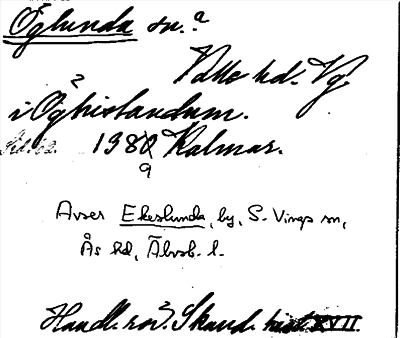 Öglunda sn.?
Valle hd. Vg.
i Øghislandum.
1380 Kalmar.
9
Avser Ekeslunda, by, S. Vings sn,
Ås hd, Älvsb. l.
Handl. rör. Skand. hist. XVII.